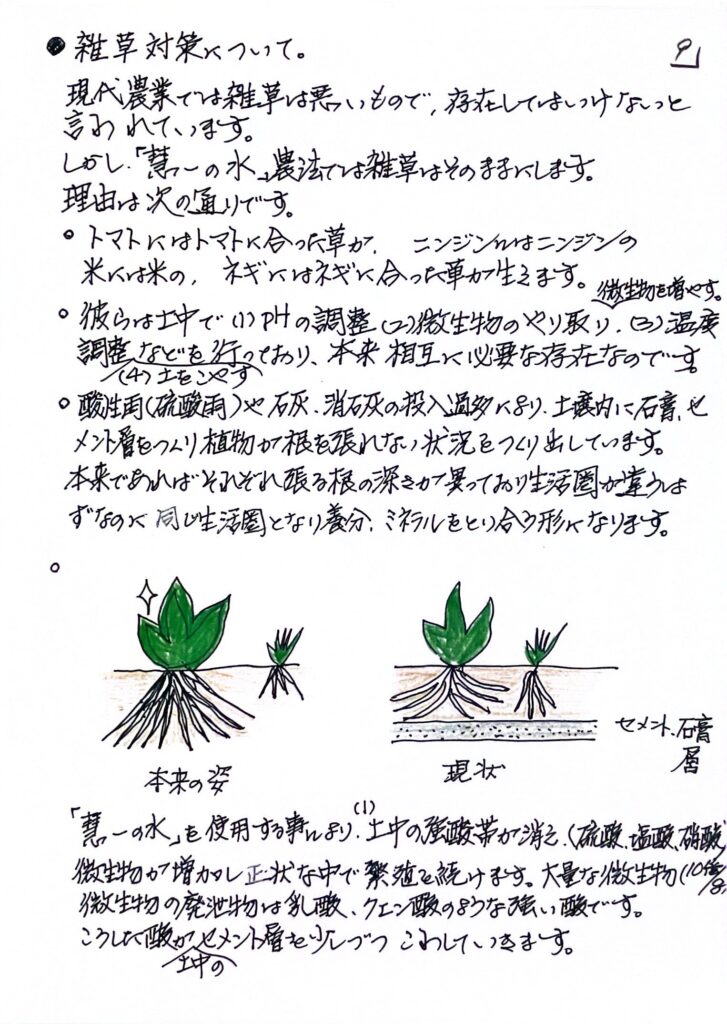 ● 雑草対策について。
9
現代農業では雑草は悪いもので、存在してはいけないと
言われています。
しかし、「慧一の水」農法では雑草はそのままにします。
理由は次の通りです。
○ トマトにはトマトに合った草が、ニンジンにはニンジンの
米には米の、ネギにはネギに合った草が生えます。
微生物を増やす。
○ 彼らは土中で(1)pHの調整(2)微生物のやり取り、(3)温度
調整などを行っており、本来相互に必要な存在なのです。
(4)土をこやす
○ 酸性雨(硫酸雨)や石灰、消石灰の投入過多により、土壌内に石膏、セ
メント層をつくり植物が根を張れない状況をつくり出しています。
本来であればそれぞれ張る根の深さが異っており生活圏が違うは
ずなのに同じ生活圏となり養分、ミネラルをとり合う形になります。
○
セメント、石膏
層
本来の姿
現状
(1)
「慧一の水」を使用する事により、土中の強酸帯が消え、(硫酸、塩酸、硝酸)
微生物が増加し正状な中で繁殖を続けます。大量な微生物(10億
微生物の廃泄物は乳酸、クエン酸のような強い酸です。
こうした酸がセメント層を少しづつこわしていきます。
土中の